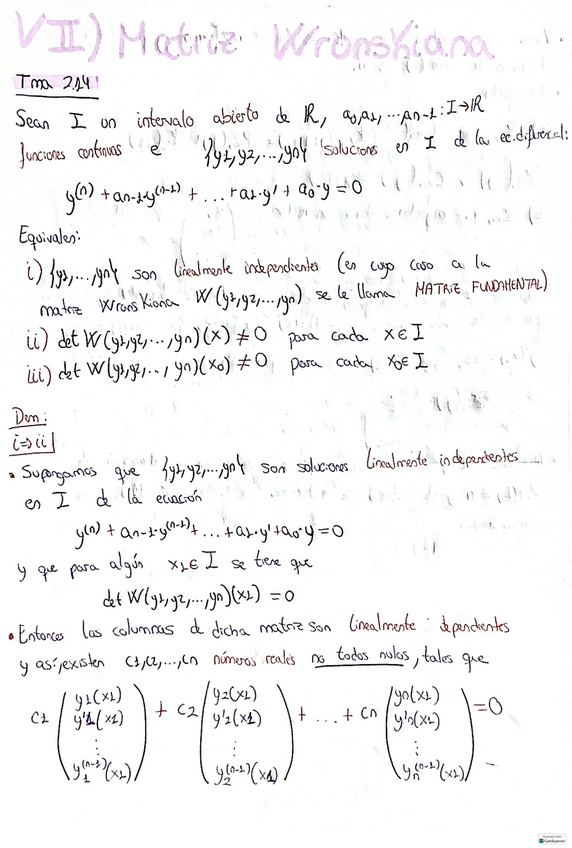 VII) Matriz Wronskiana
Tma 2.14
Sean I un intervalo abierto de ℝ, a₀,a₁, ...an-1: I→ℝ
funciones continuas e {y1,y2,...,yn} soluciones en I de la ec.diferencial:
y⁽ⁿ⁾ + an-1·y⁽ⁿ⁻¹⁾ + ... + a1·y' + a0·y = 0
Equivalen:
i) {y1,...,yn} son linealmente independientes (en cuyo caso a la
matriz Wronskiana W(y1,y2,...,yn) se le llama MATRIZ FUNDAMENTAL)
ii) det W(y1,y2,...,yn)(x) ≠ 0 para cada x∈I
iii) det W(y1,y2,..,yn)(x0) ≠ 0 para cada x0∈I
Dem:
i⇒ii
• Supongamos que {y1,y2,...,yn} son soluciones linealmente independentes
en I de la ecuación
y⁽ⁿ⁾ + an-1·y⁽ⁿ⁻¹⁾ + ... + a1·y' + a0·y = 0
y que para algún x1∈I se tiene que
det W(y1,y2,...,yn)(x1) = 0
• Entonces las columnas de dicha matriz son linealmente dependientes
y así, existen c1,c2,...,cn números reales no todos nulos, tales que
c1 (y1(x1) y'1(x1) ⋮ y1⁽ⁿ⁻¹⁾(x1)) + c2 (y2(x1) y'2(x1) ⋮ y2⁽ⁿ⁻¹⁾(x1)) + ... + cn (yn(x1) y'n(x1) ⋮ yn⁽ⁿ⁻¹⁾(x1)) = 0
CamScanner